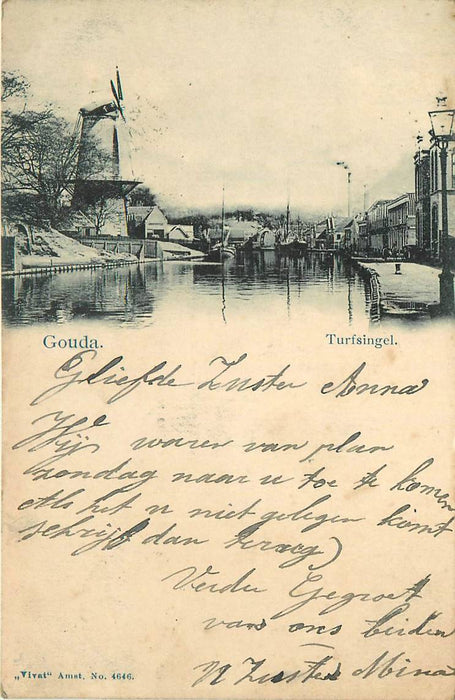 Gouda. Turfsingel.
Geliefde Zuster Anna
Wij waren van plan
zondag naar u toe te komen
Als het u niet gelegen komt
schrijf dan terug)
Verder Gegroet
van ons beiden
U Zuster Mina
„Vivat" Amst. No. 4646.